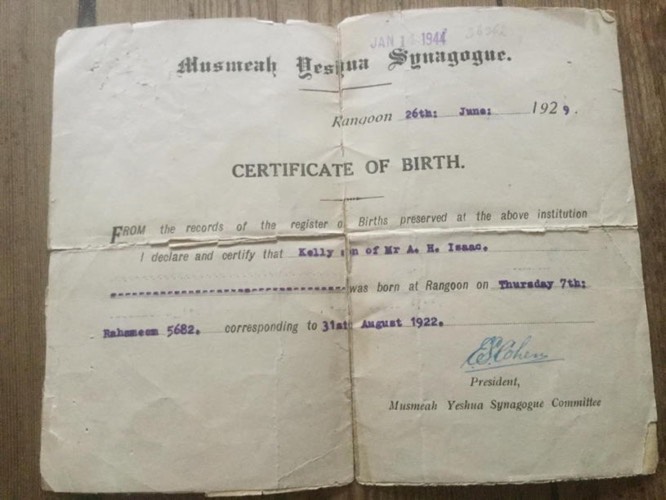 JAN 14 1944
Musmeah Yeshua Synagogue.
Rangoon 26th: June: 1929.
CERTIFICATE OF BIRTH.
FROM the records of the register o Births preserved at the above institution
I declare and certify that Kelly son of Mr A. H. Isaac.
was born at Rangoon on Thursday 7th:
Rahameem 5682. corresponding to 31st August 1922.
E. Cohen
President,
Musmeah Yeshua Synagogue Committee